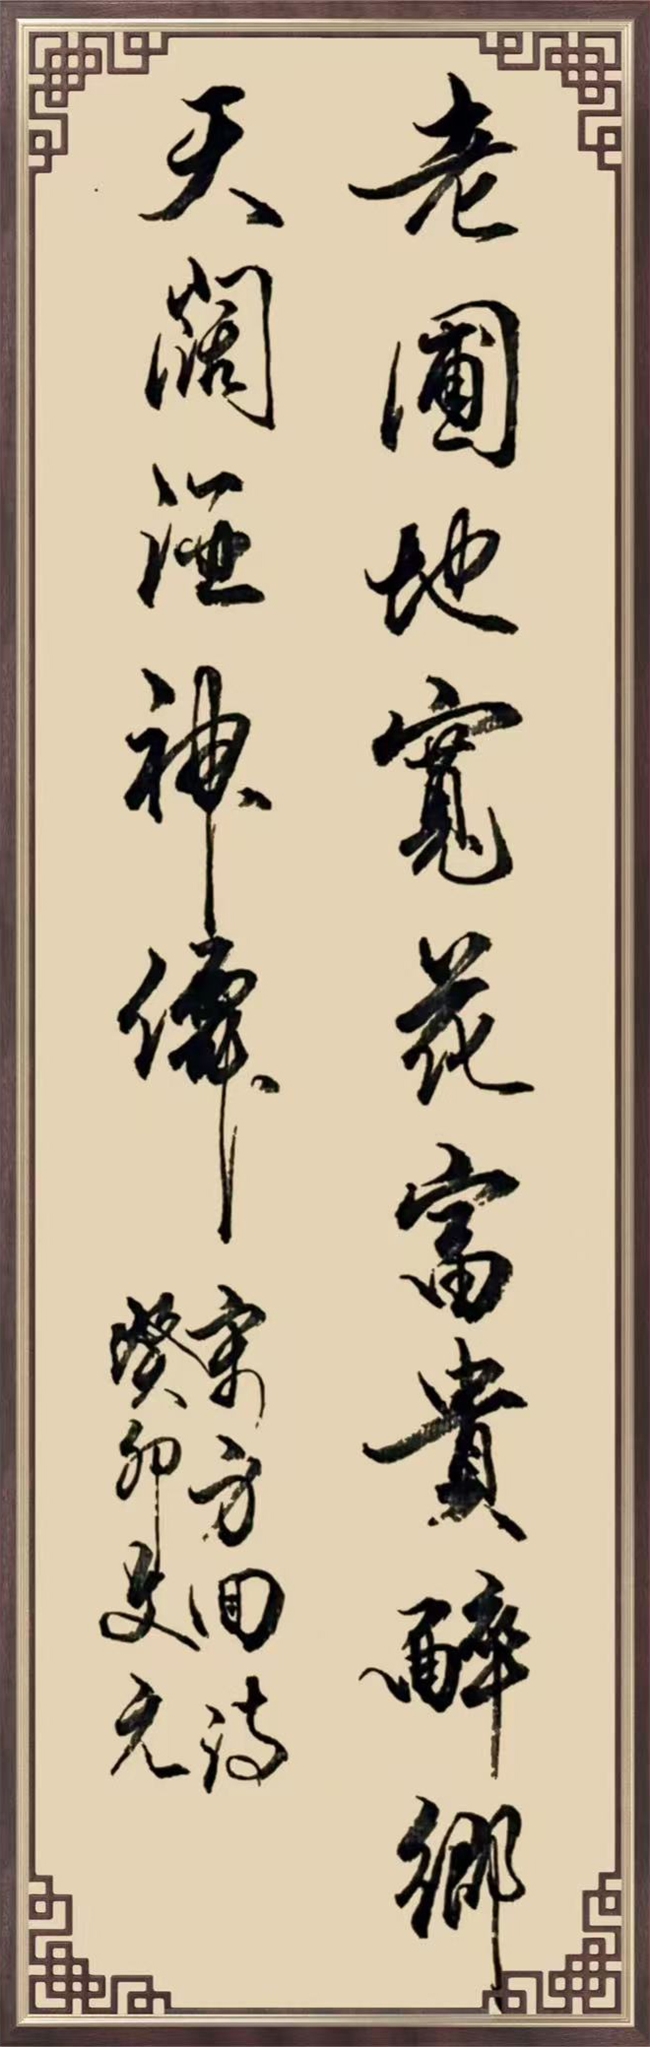 老圃地寬花富貴醉鄉
天闊酒神僊
宋方回詩
癸卯史元